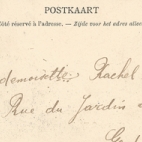 POSTKAART
Côté réservé à l'adresse. — Zijde voor het adres alleen
demoiselle Rachel
Rue du Jardin